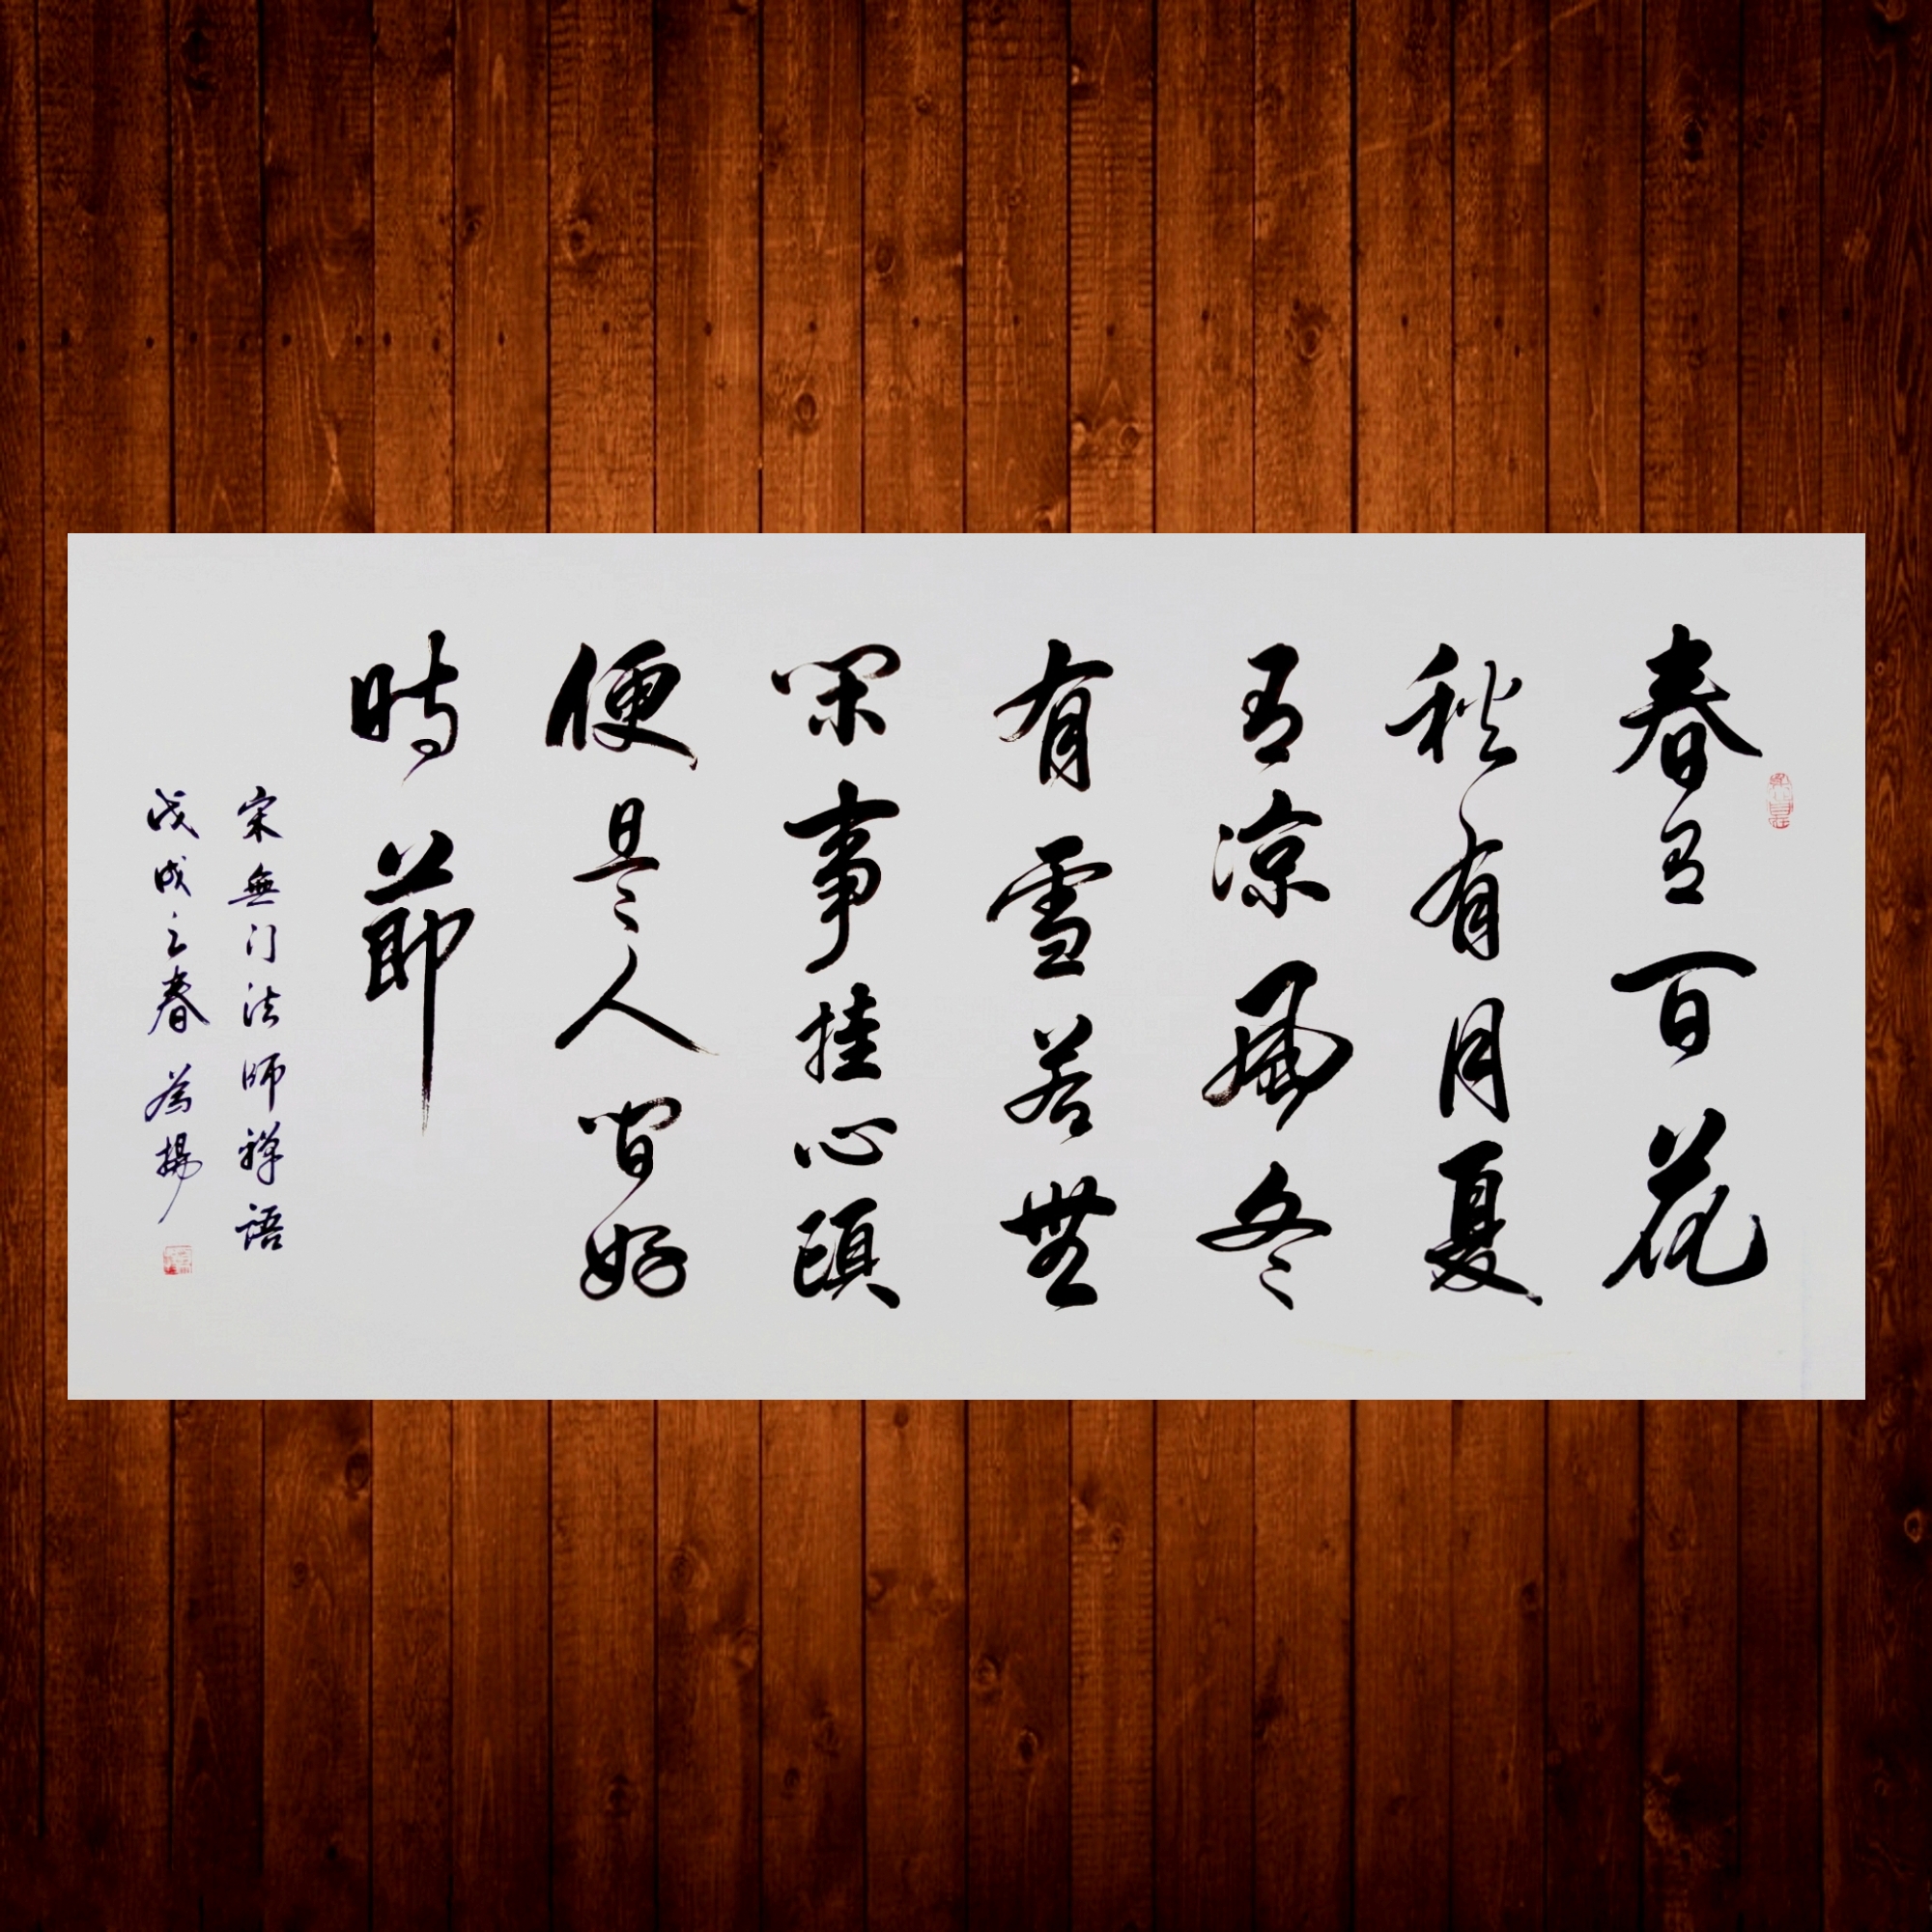 春有百花
秋有月夏
有凉風冬
有雪若無
閑事挂心頭
便是人間好
時節
宋無门法師禅語
戊戌之春為揚